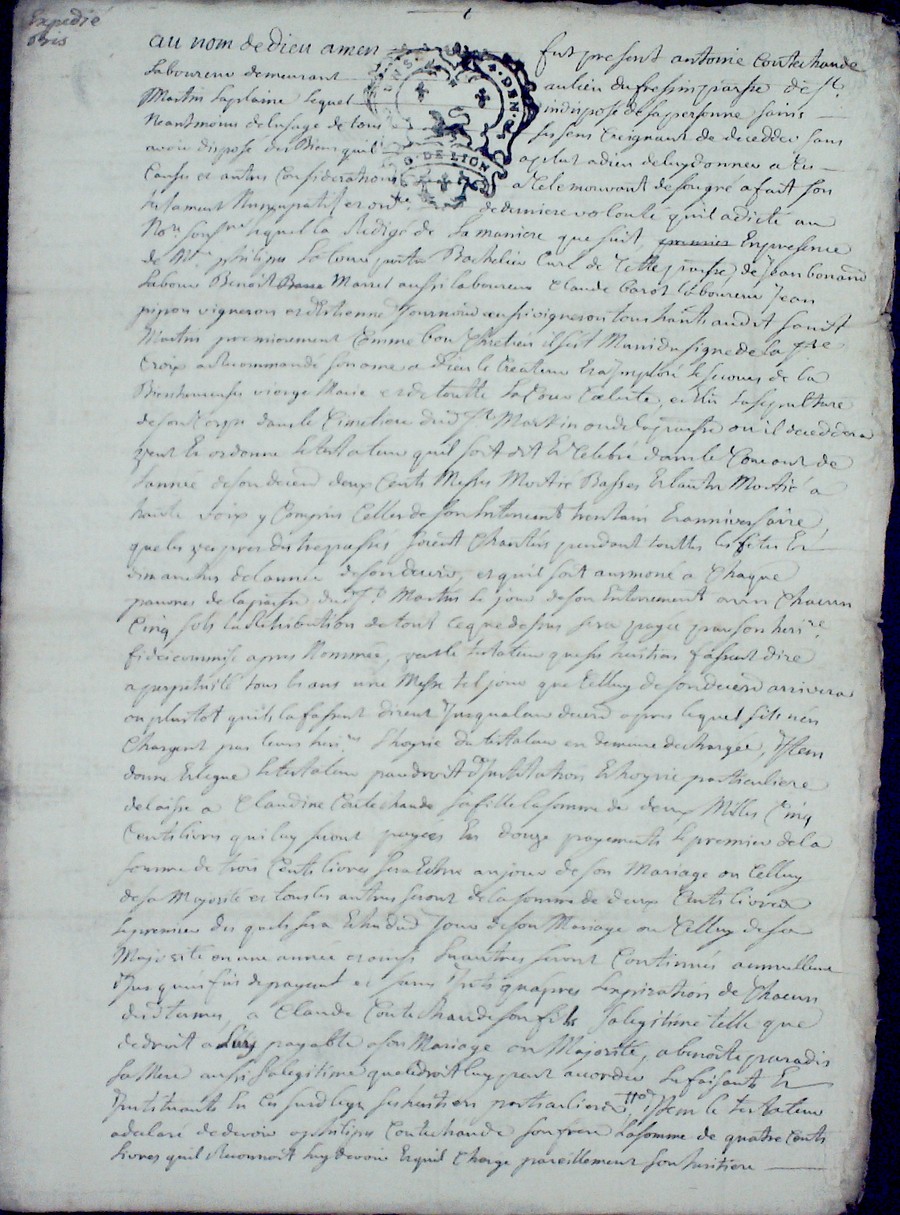 Expedié
au nom de dieu amen fut present antoine Coutechaude
Laboureur demeurant au lieu du fressin parsse de St
Martin Laplaine Lequel indispose de sa personne sains
Neantmoins de lusage de tous ses sens Creignant de decedder sans
avoir dispose des Biens quil a plut a dieu de luy donner a Ces
Causes et autres Considerations a Ce le mouvant de son gré a fait son
testament Nuncupatif et ordre de derniere volonté quil a dicté au
Nore soussné lequel la Redigé de La maniere que suit, premier En presence
de Mre philippe La Cour pretre Bachelier Curé de Cette parsse, de Jean bonnand
Labour Benoît Marret aussi laboureur Claude barot laboureur Jean
pipon vigneron et d'Etienne fournier aussi vigneron tous hants audt saint
Martin premierement Comme bon Chretien il s'est Muni du signe de la ste
Croix a Recommandé son ame a Dieu le Createur Et a imploré le secours de la
Bienheureuse vierge Marie et de toutte La Cour Celeste, a Elu La sepulture
de son Corps dans le Cimetiere dud St Martin ou de la parsse ou il deceddera
veut Et ordonne Le testateur quil soit dit Et Celebré dans le Courant de
l'année de son decend deux Cents Messes Moitié Basses Et lautre Moitié a
haute voix y Compris Celles de son Enterrement trentain Et anniversaire,
que les vepres des trepassés soient Chantées pendant touttes les fêtes Et
dimanches de lannée de son decend, et quil soit aumoné a Chaque
pauvres de la parsse dud St Martin Le jour de son Enterrement a un Chacun
Cinq sols La Retribution de tout Ce que dessus sera payée par son herre
fideicommise apres Nommée, veut le testateur que ses heritiers fassent dire
a perpetuité tous les ans une Messe tel jour que Celluy de son decend arrivera
ou plustot quils la fassent dire Jusqua leur decend apres lequel sils nen
Chargent pas leurs herres L'hoyrie du testateur en demeure dechargée, Item
donne Et legue Le testateur par droit d'Institution Et hoyrie particuliere
delaisse a Claudine Coutechaude sa fille la somme de deux Milles Cinq
Cents livres qui luy seront payées En douze payements Le premier de la
somme de trois Cents livres sera Echu au jour de son Mariage ou Celluy
de sa Majorité et tous les autres seront de la somme de deux Cents livres
Le premier des quels sera Echu dud Jour de son Mariage ou Celluy de sa
Majorité en une année et ainsi Les autres seront Continués annuellement
Jusqu'a fin de payement et sans Interets qu'apres L'expiration de Chacun
desd termes, a Claude Coutechaude son fils sa legitime telle que
de droit a Luy payable a son Mariage ou Majorité, a benoîte paradis
sa Mere aussi sa legitime que le droit luy peut accorder Les faisants Et
Instituants En Ces susd legs ses heritiers particuliers, Item le testateur
a declaré de devoir a philipe Coutechaude son frere La somme de quatre Cents
Livres quil Reconnoit luy devoir Et quil Charge pareillement son heritiere